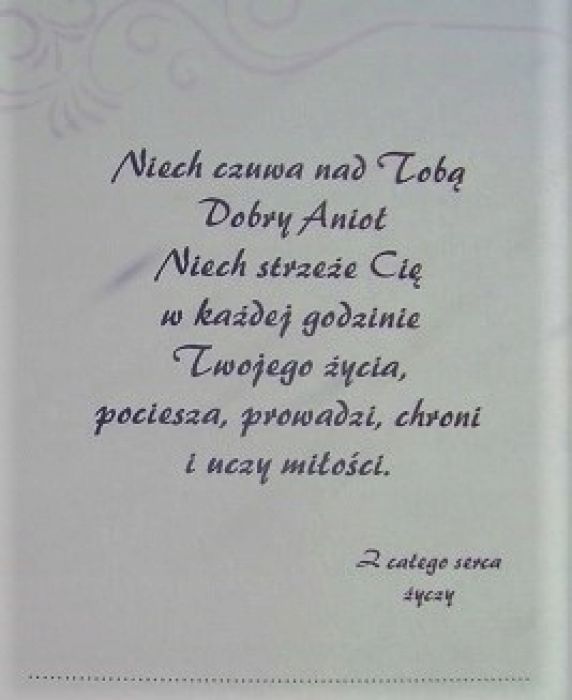 Niech czuwa nad Tobą
Dobry Anioł
Niech strzeże Cię
w każdej godzinie
Twojego życia,
pociesza, prowadzi, chroni
i uczy miłości.
Z całego serca
życzy